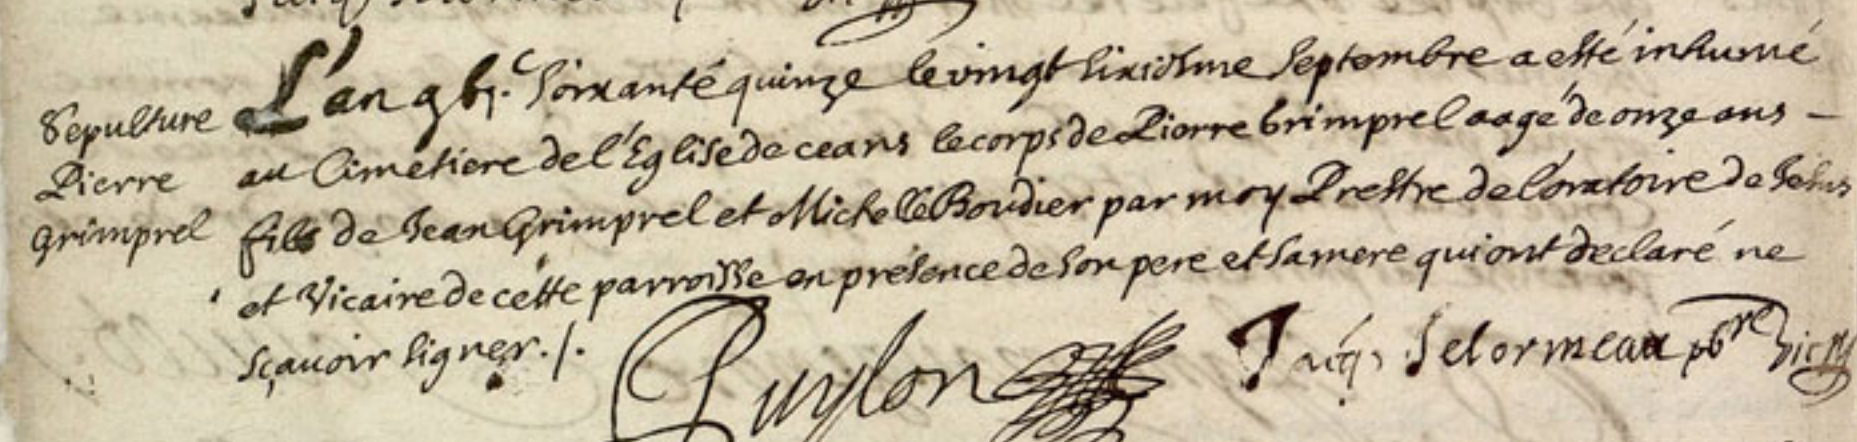 Sepulture
Pierre
Grimprel
L'an gbj.c soixanté quinze le vingt sixiesme Septembre a esté inhumé
au Cimetiere de l'Eglise de ceans le corps de Pierre Grimprel aagé de onze ans –
fils de Jean Grimprel et Michelle Boudier par moy Prestre de l'oratoire de Jesus
et Vicaire de cette parroisse en presence de son pere et sa mere qui ont declaré ne
sçavoir signer ./.
Puylon
Jacq. Delormeau pbre vic